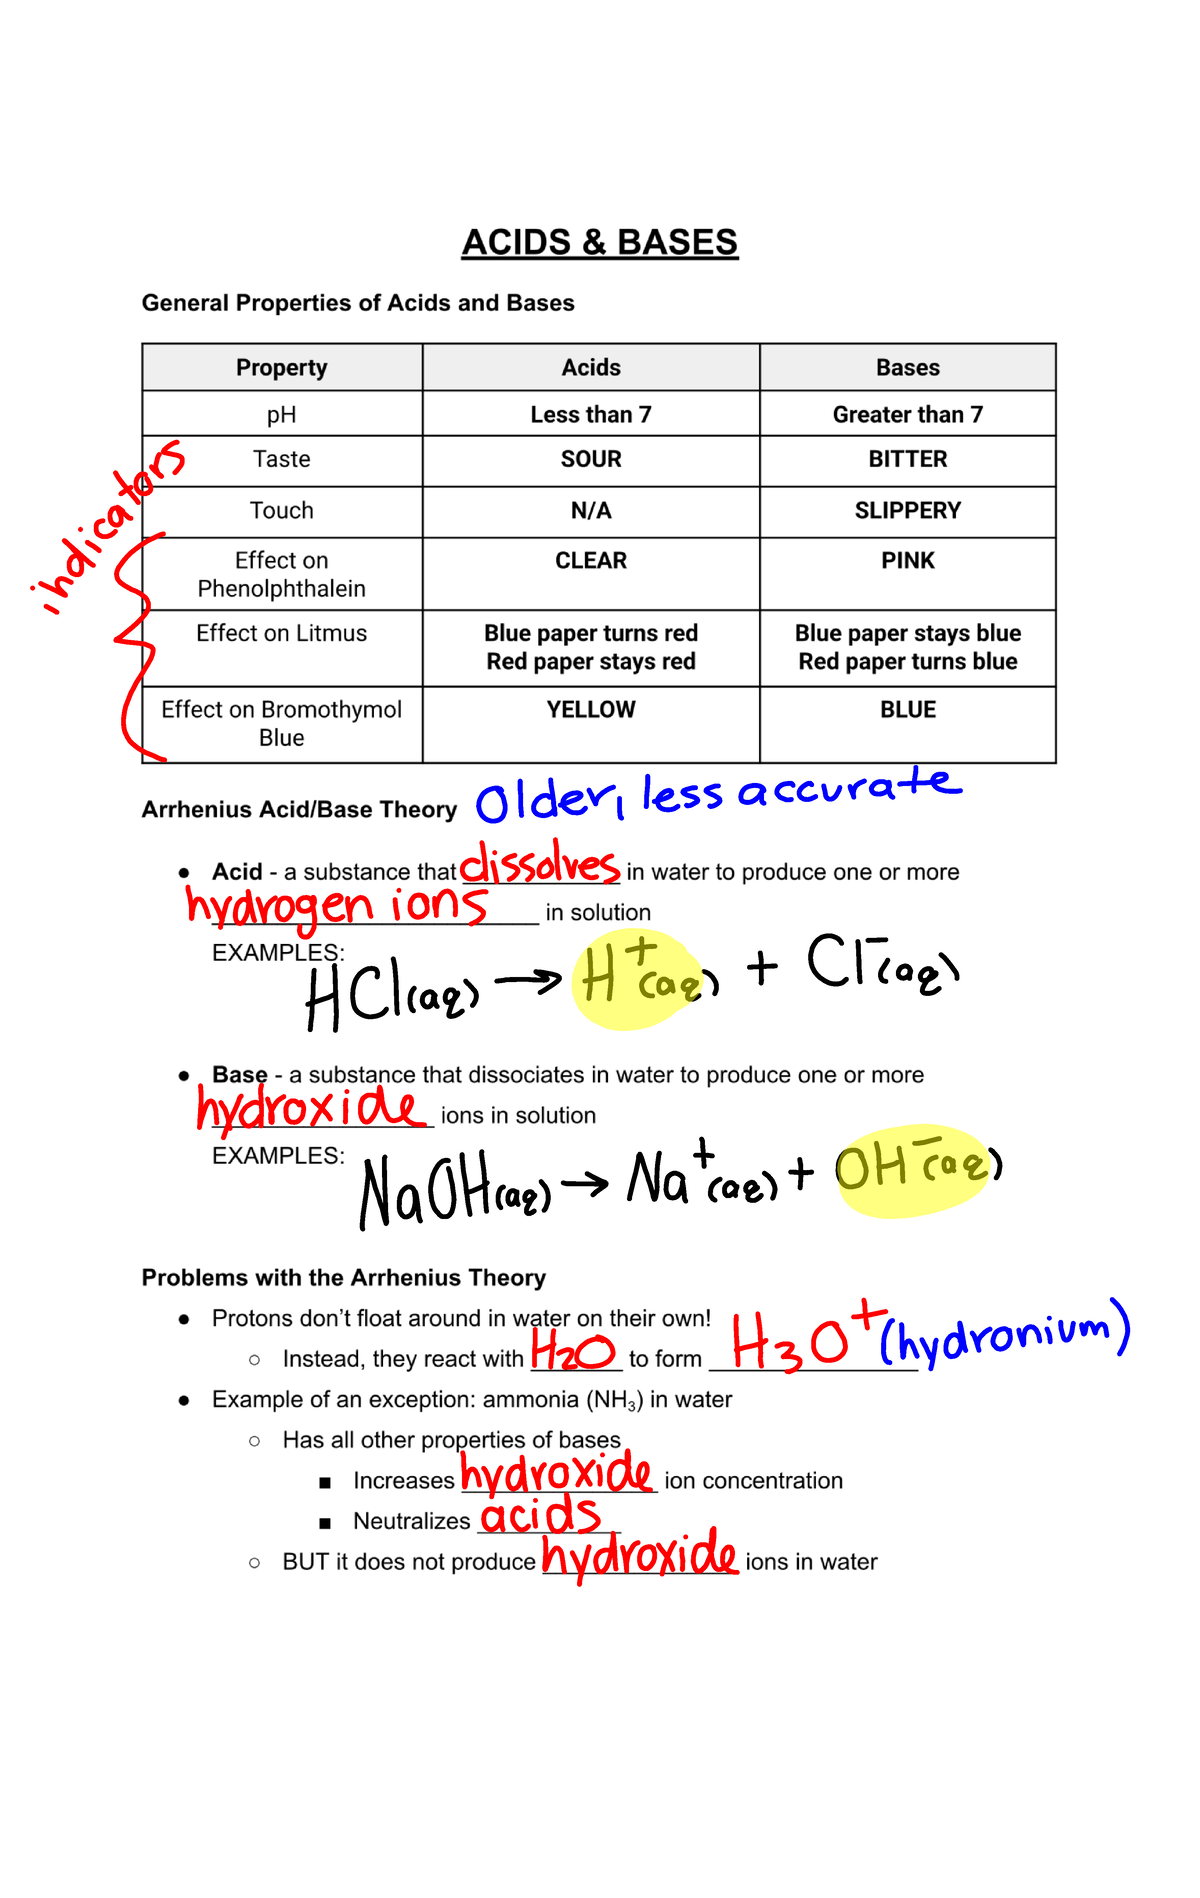 ACIDS & BASES
General Properties of Acids and Bases
Property Acids Bases
pH Less than 7 Greater than 7
Taste SOUR BITTER
Touch N/A SLIPPERY
indicators
Effect on Phenolphthalein CLEAR PINK
Effect on Litmus Blue paper turns red Blue paper stays blue
Red paper stays red Red paper turns blue
Effect on Bromothymol Blue YELLOW BLUE
Arrhenius Acid/Base Theory Older, less accurate
● Acid - a substance that dissolves in water to produce one or more
hydrogen ions in solution
EXAMPLES:
HCl(aq) → H⁺(aq) + Cl⁻(aq)
● Base - a substance that dissociates in water to produce one or more
hydroxide ions in solution
EXAMPLES:
NaOH(aq) → Na⁺(aq) + OH⁻(aq)
Problems with the Arrhenius Theory
● Protons don’t float around in water on their own!
○ Instead, they react with H2O to form H3O⁺ (hydronium)
● Example of an exception: ammonia (NH₃) in water
○ Has all other properties of bases
■ Increases hydroxide ion concentration
■ Neutralizes acids
○ BUT it does not produce hydroxide ions in water